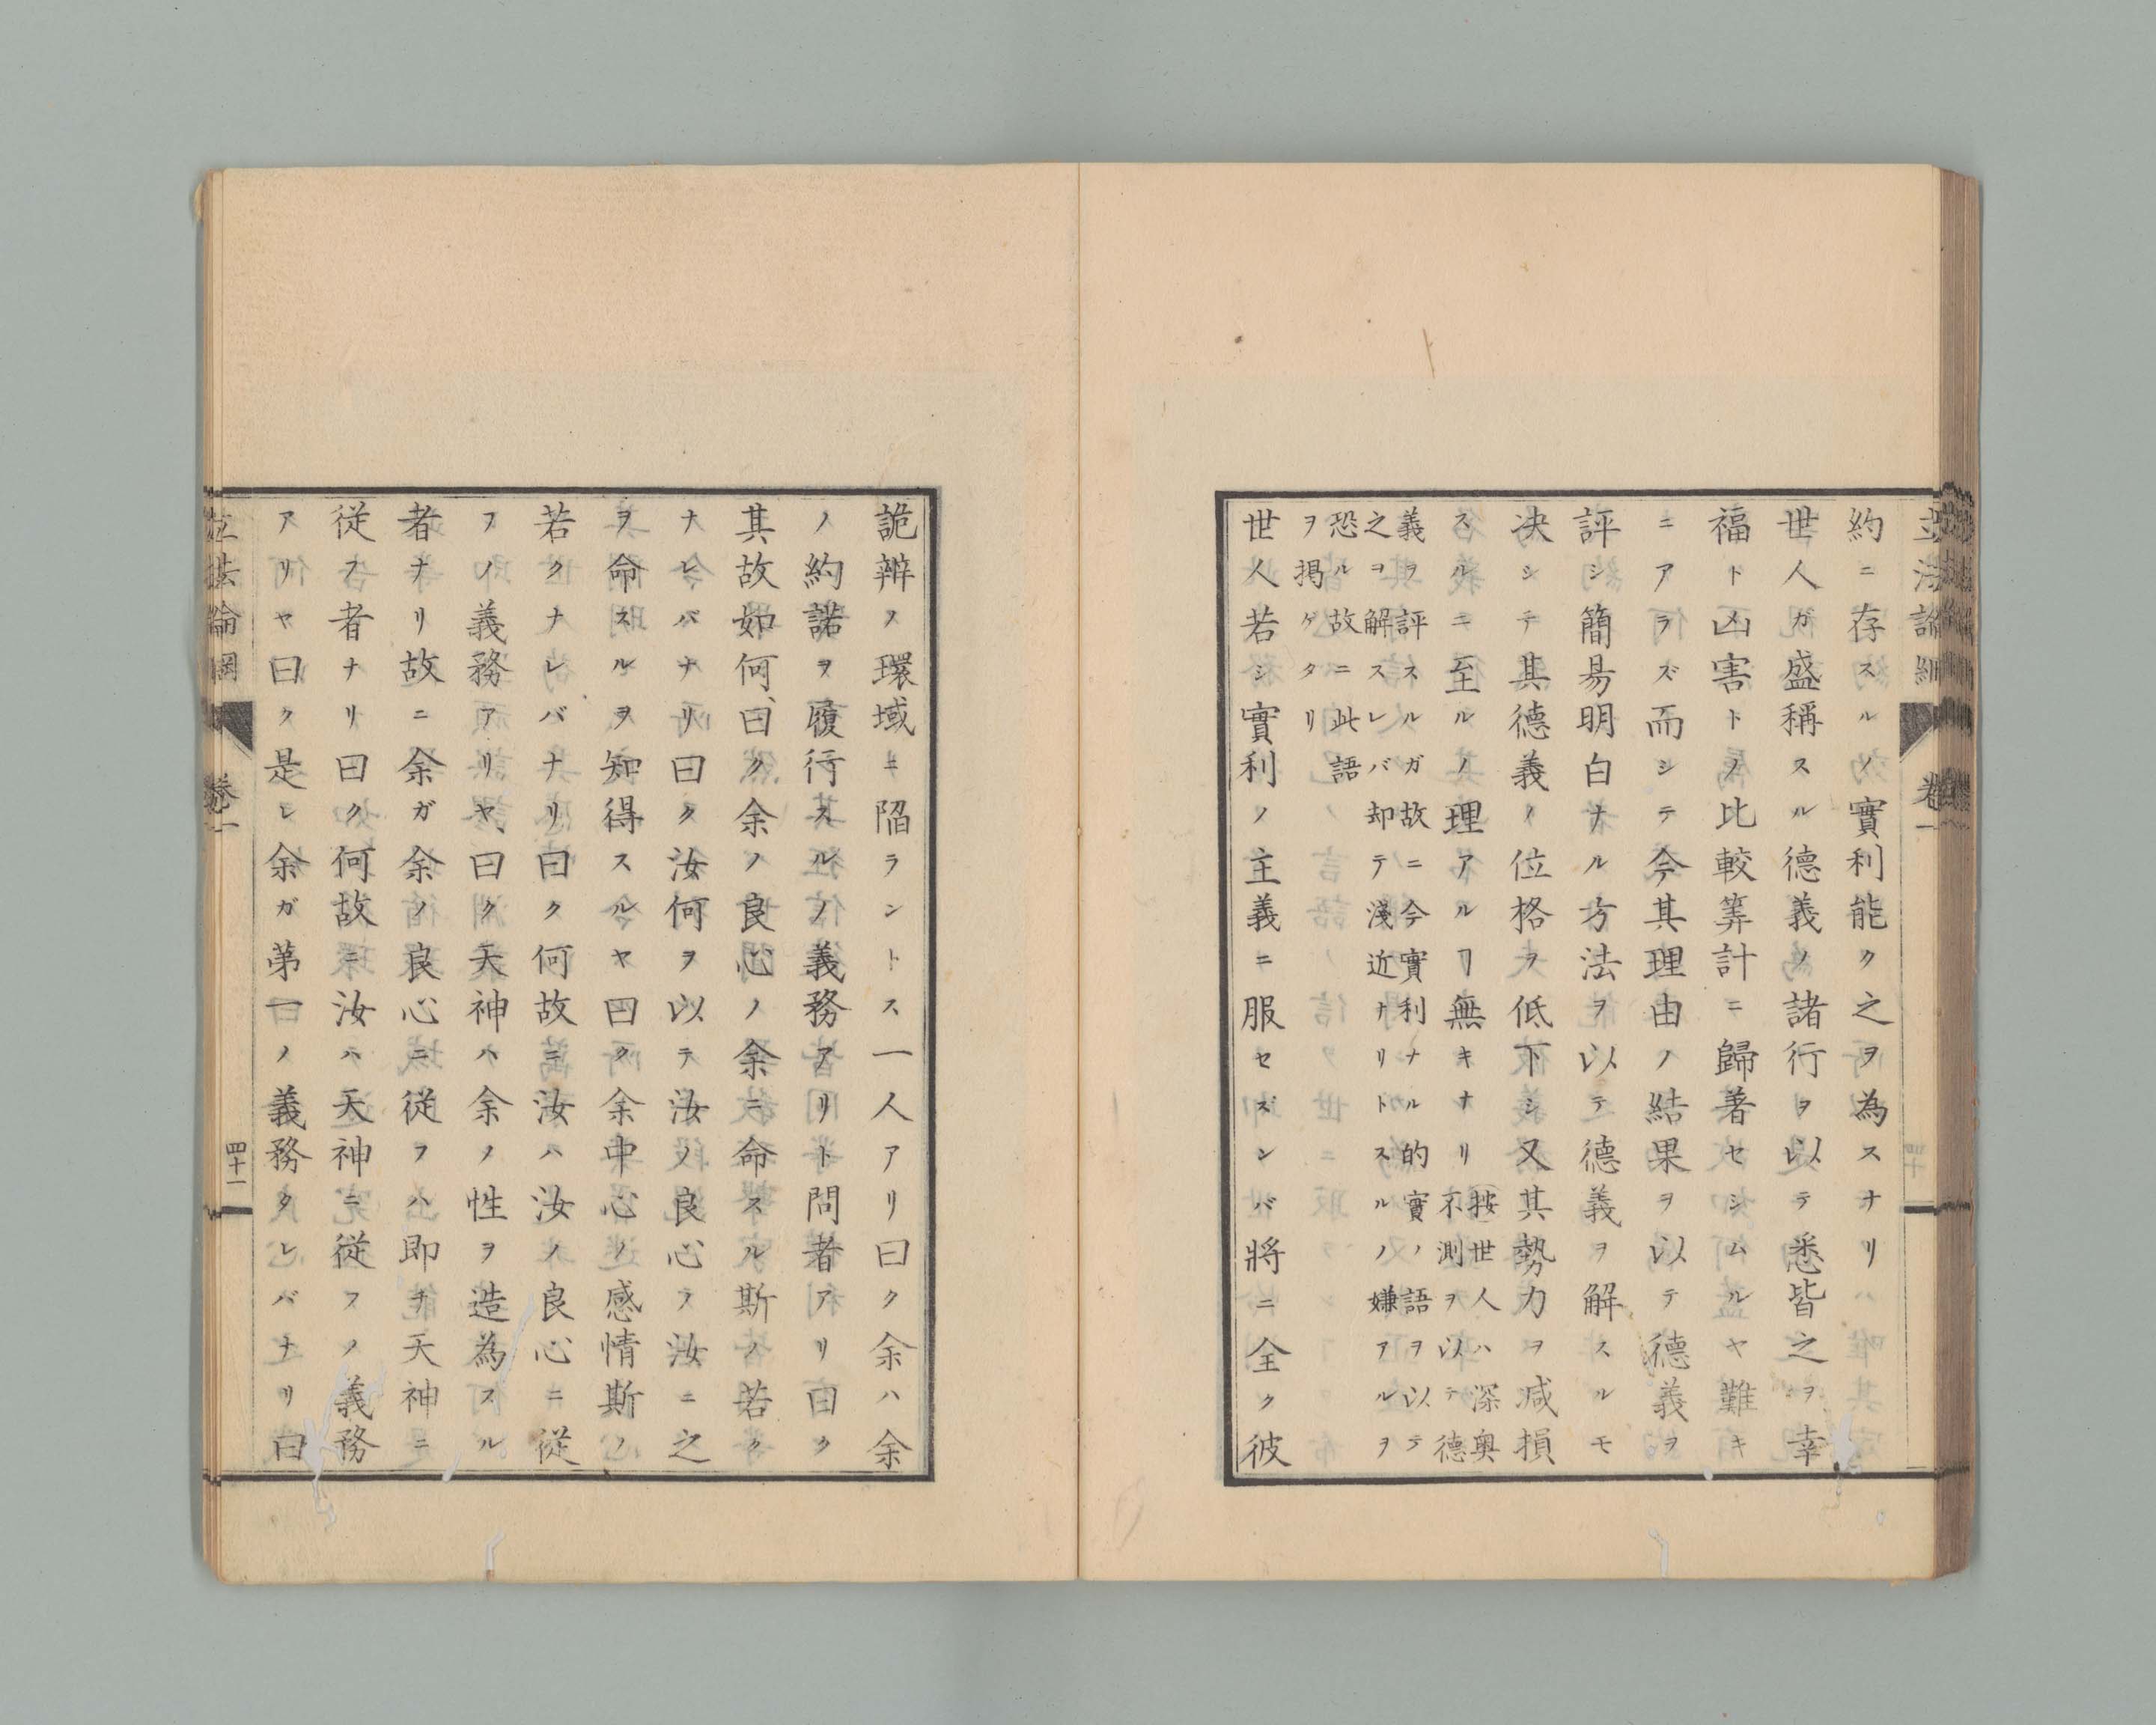 立法論綱
卷一
約ニ存スルノ實利能ク之ヲ為スナリ
世人ガ盛稱スル德義ノ諸行ヲ以テ悉皆之ヲ幸
福ト凶害トノ比較筭計ニ歸著セシムルヤ難キ
ニアラズ而シテ今其理由ノ結果ヲ以テ德義ヲ
評シ簡易明白ナル方法ヲ以テ德義ヲ解スルモ
决シテ其德義ノ位格ヲ低下シ又其勢力ヲ减損
スルニ至ルノ理アルヿ無キナリ
按世人ハ深奥
不測ヲ以テ德
義ヲ評スルガ故ニ今實利ナル的實ノ語ヲ以テ
之ヲ解スレバ却テ淺近ナリトスルノ嫌アルヲ
恐ル故ニ此語
ヲ掲ゲタリ
世人若シ實利ノ主義ニ服セズンバ將ニ全ク彼
詭辨ノ環域ニ陷ラントス一人アリ曰ク余ハ余
ノ約諾ヲ履行スルノ義務アリト問者アリ曰ク
其故如何曰ク余ノ良心ノ余ニ命スル斯ノ若ク
ナレバナリ曰ク汝何ヲ以テ汝ノ良心ノ汝ニ之
ヲ命スルヲ知得スルヤ曰ク余中心ノ感情斯ノ
若クナレバナリ曰ク何故ニ汝ハ汝ノ良心ニ從
フノ義務アリヤ曰ク天神ハ余ノ性ヲ造為スル
者ナリ故ニ余ガ余ノ良心ニ從フハ即チ天神ニ
從フ者ナリ曰ク何故ニ汝ハ天神ニ從フノ義務
アリヤ曰ク是レ余ガ第一ノ義務タレバナリ曰
立法論綱
卷一
四十一